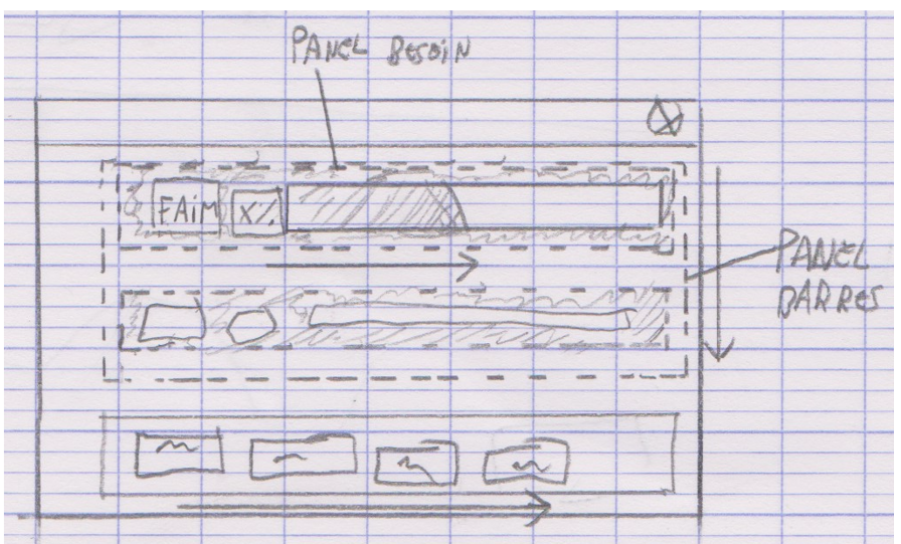 PANEL BESOIN
FAIM X%
PANEL
BARRES